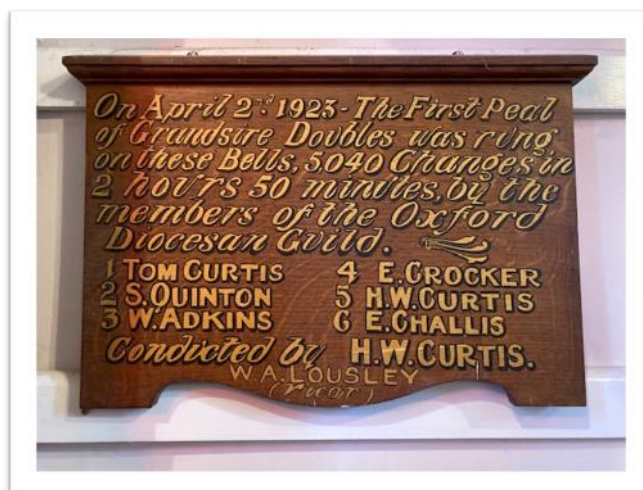 On April 2nd. 1923 - The First Peal
of Grandsire Doubles was rung
on these Bells, 5,040 Changes in
2 hours 50 minutes, by the
members of the Oxford
Diocesan Guild.
1 TOM CURTIS 4 E. CROCKER
2 S. QUINTON 5 H.W. CURTIS
3 W. ADKINS 6 E. CHALLIS
Conducted by H.W. CURTIS.
W.A. LOUSLEY
(Vicar)